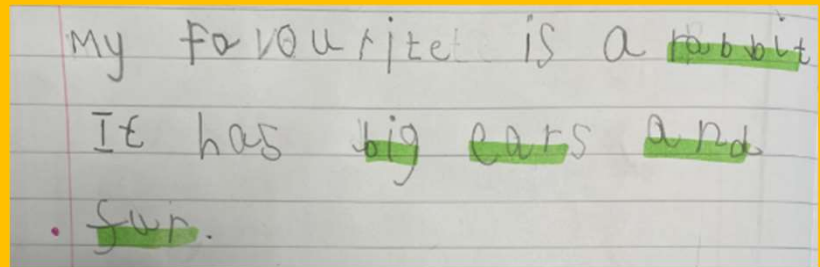 My favourite is a rabbit
It has big ears and
fur.